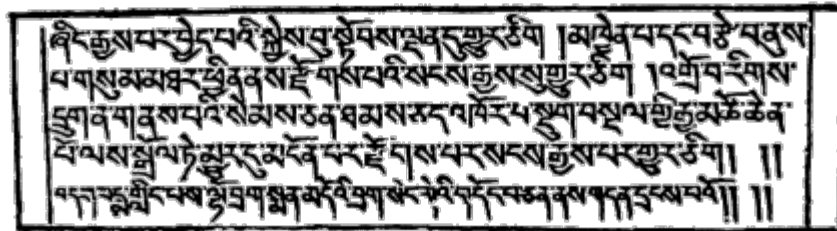 ཞིང་རྒྱས་པར་བྱེད་པའི་སྐྱེས་བུ་སྟོབས་ལྡན་དུ་གྱུར་ཅིག །མཁྱེན་པ་དང་བརྩེ་བ་ནུས་
པ་གསུམ་མཐར་ཕྱིན་ནས་རྫོགས་པའི་སངས་རྒྱས་སུ་གྱུར་ཅིག །འགྲོ་བ་རིགས་
དྲུག་ན་གནས་པའི་སེམས་ཅན་ཐམས་ཅད་འཁོར་བ་སྡུག་བསྔལ་གྱི་རྒྱ་མཚོ་ཆེན་
པོ་ལས་སྒྲོལ་ཏེ་མྱུར་དུ་མངོན་པར་རྫོགས་པར་སངས་རྒྱས་པར་གྱུར་ཅིག། །།
གླིང་པས་ལྷོ་བྲག་སྨན་མདོའི་བྲག་སེང་གེའི་གདོང་པ་ཅན་ནས་གདན་དྲངས་པའོ།། །།